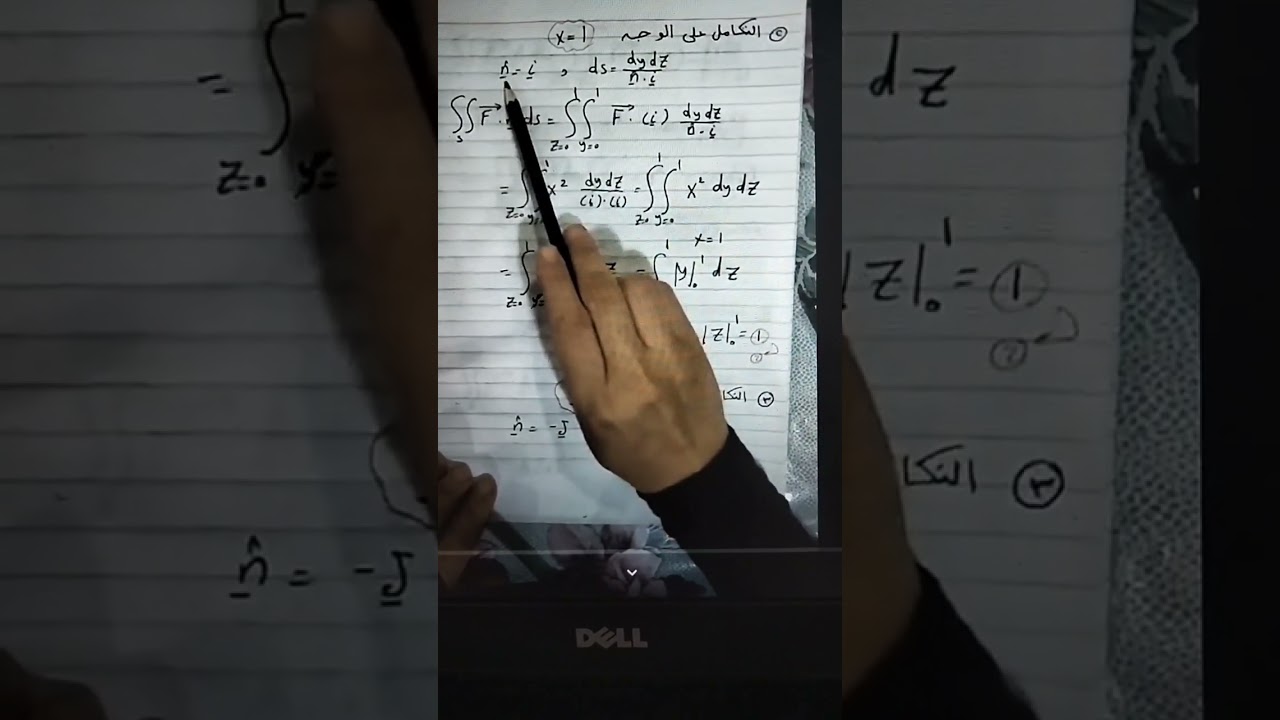 ② التكامل على الوجه x=1
n̂ = i , ds = dy dz / n̂ · i
∬ₛ F⃗ · ds = ∫₀¹ ∫₀¹ F⃗ · (i) dy dz / n̂ · i
z=0 y=0
= ∫ ¹ x² dy dz / (i)·(i) = ∫¹ ∫¹ x² dy dz
z=0 z=0 y=0
x=1
= ∫¹ = ∫¹ |y|₀¹ dz
z=0 y=
|z|₀¹ = ①
②
③ التكا
n̂ = -J
DELL